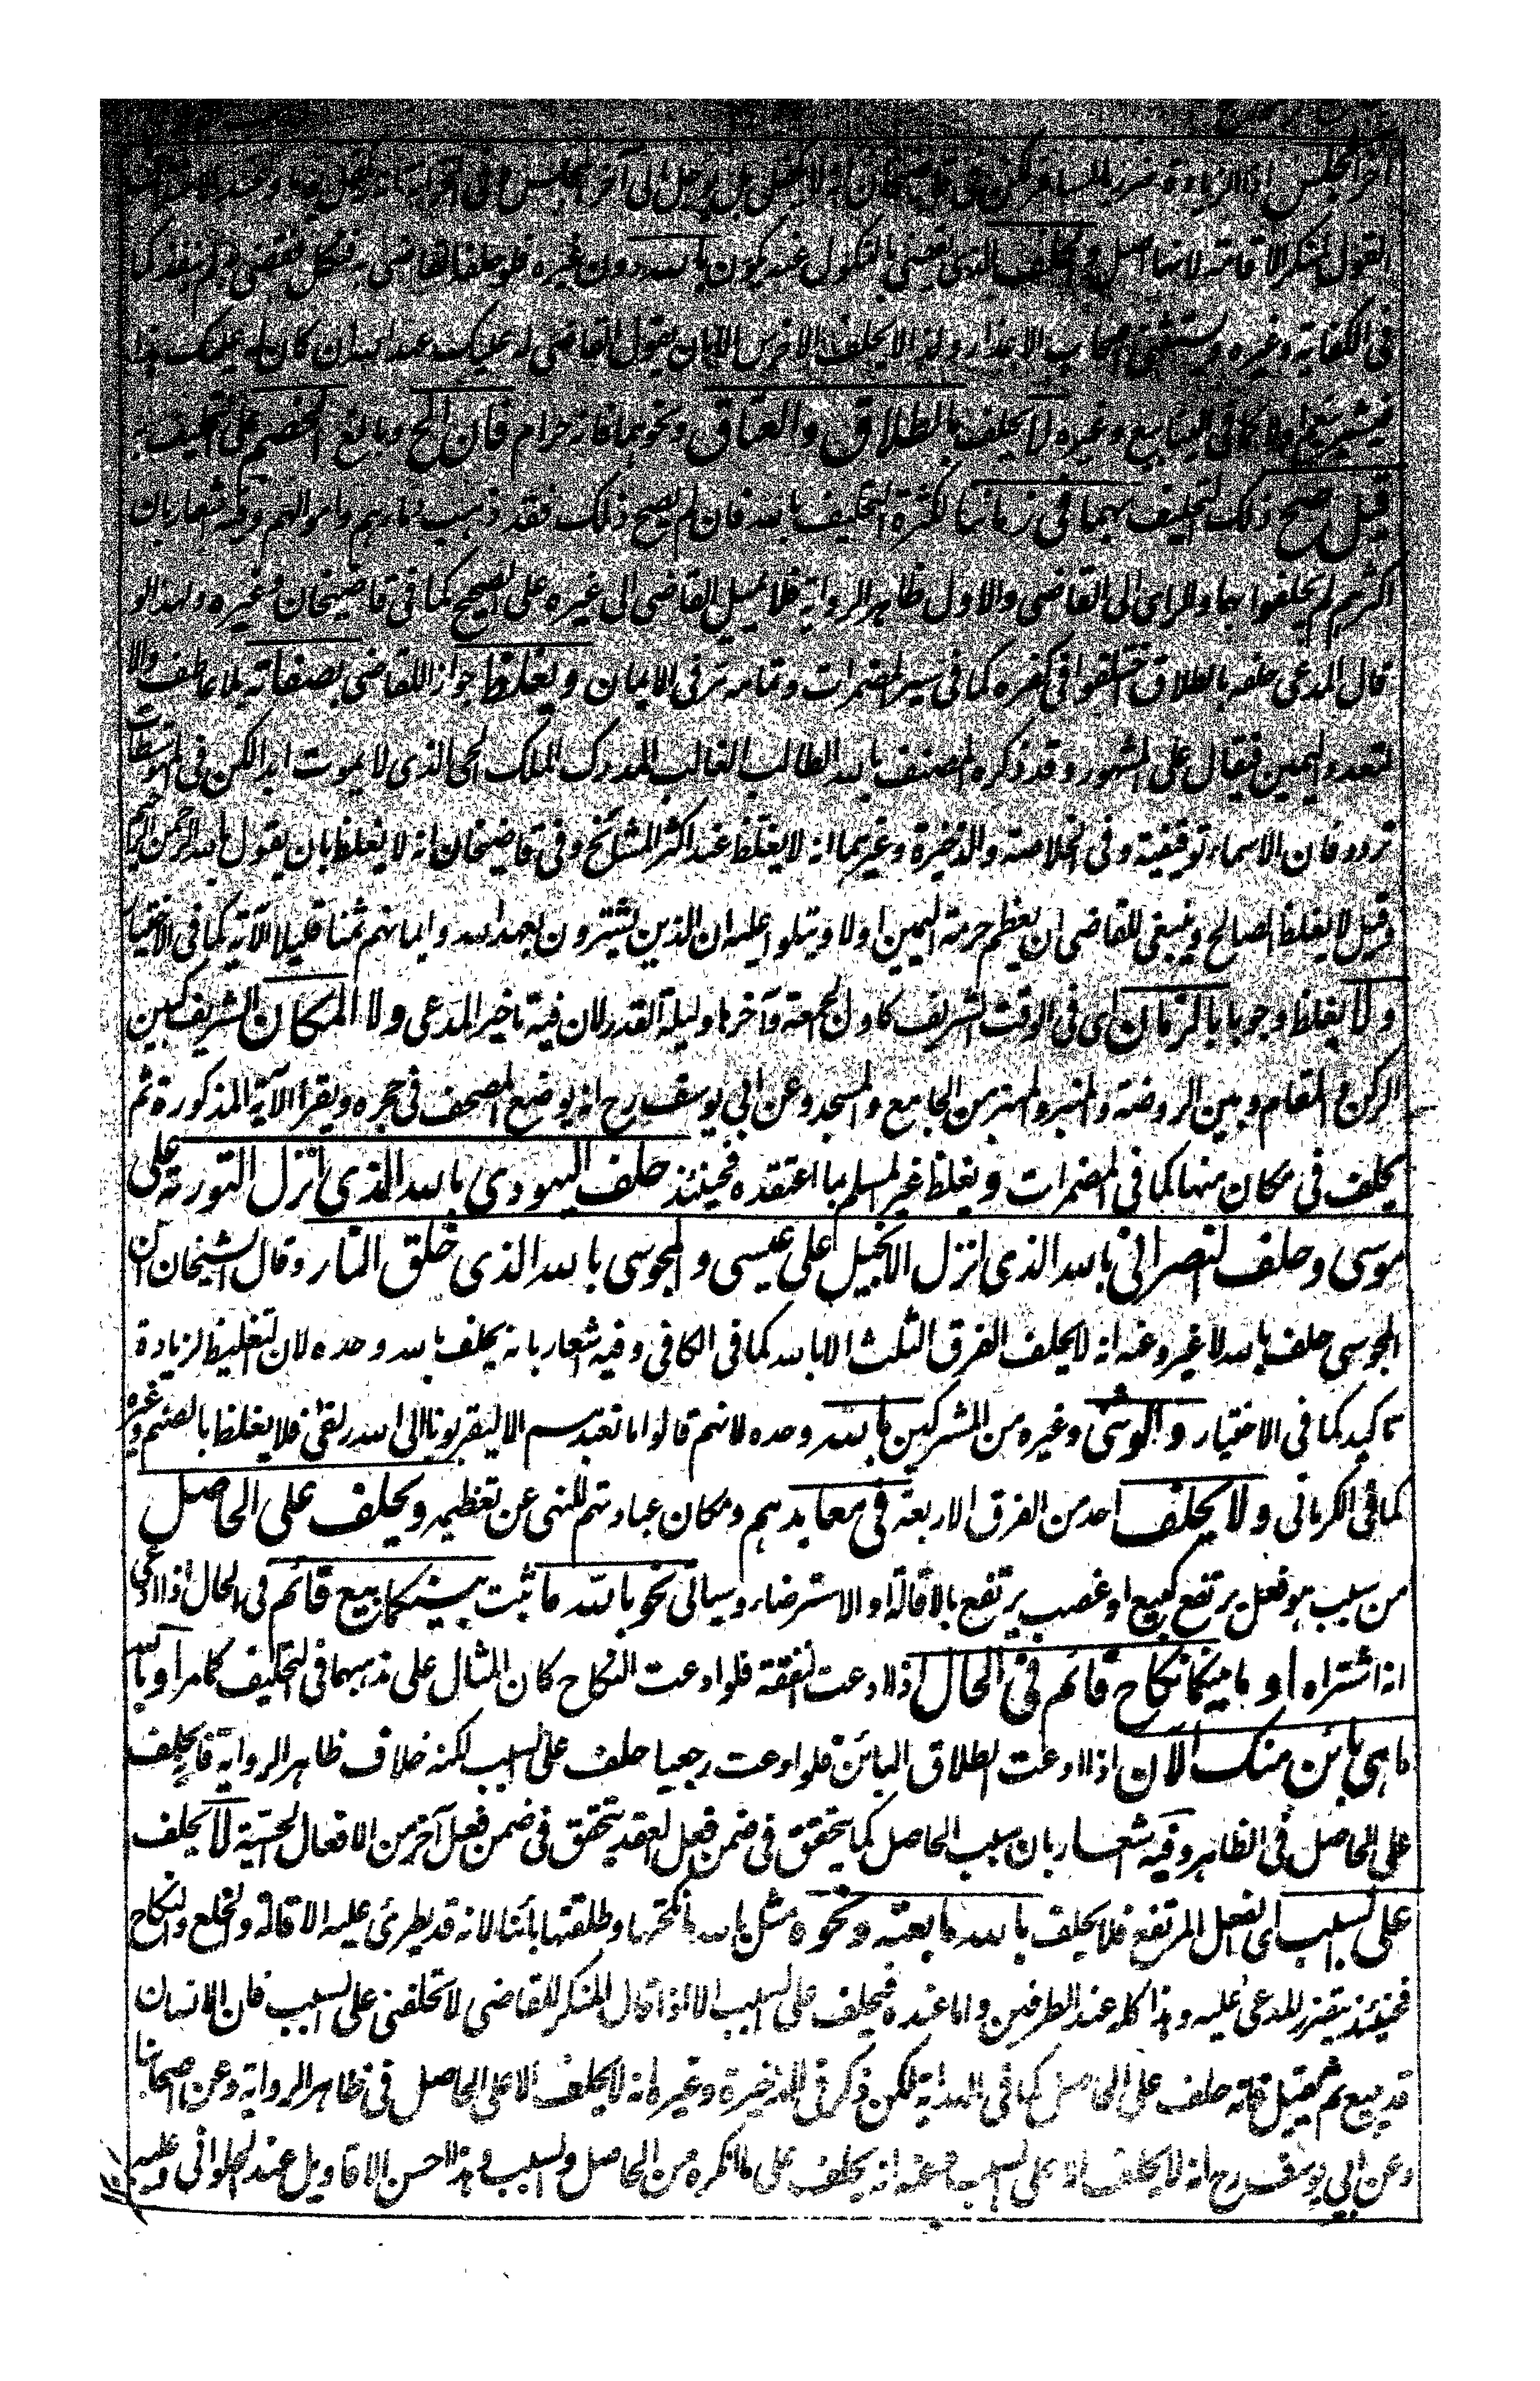 آخر المجلس اى الزيادة ضرر بالمسافر لكن فى قاضيخان انه لا يكفل بل يؤجل الى آخر المجلس
القول لمنكر الاقامة لانها اصل والحلف الذى يقضى بالنكول عنه يكون بالله دون غيره فلو حلفه القاضى به فنكل فقضى لم ينفذ كما
فى الكفاية وغيره ويستثنى اصحاب الاعذار ولذا لا يحلف الاخرس الا بان يقول القاضى له عليك عهد الله ان كان له عليك هذا
فيشير بنعم او لا كما فى الينابيع وغيره لا يحلف بالطلاق والعتاق ونحوهما فانه حرام فان الح وبالغ الخصم على التحليف به
قيل صح ذلك التحليف بهما فى زماننا لكثرة التحليف بالله فان لم يصح ذلك فقد ذهب دماؤهم واموالهم وفيه اشعار بان
اكثرهم لم يحلفوا بها والراى الى القاضى والاول ظاهر الرواية فلا يميل القاضى الى غيره على الصحيح كما فى قاضيخان وغيره ولهذا لو
قال المدعى حلفه بالطلاق اختلفوا فى كفره كما فى سير المضمرات وتمامه مر فى الايمان ويغلظ جوازا للقاضى بصفاته بلا عاطف والا
لتعدد اليمين فيقال على المشهور وقد ذكره المصنف بالله الطالب الغالب المدرك الملك الحى الذى لا يموت ابدا لكن فى المبسوطات
تردد فان الاسماء توقيفية وفى الخلاصة والذخيرة وغيرهما انه لا يغلظ عند اكثر المشايخ وفى قاضيخان انه لا يغلظ بان يقول بالله الرحمن الرحيم
وقيل لا يغلظ الصالح وينبغى للقاضى ان يعظم حرمة اليمين اولا ويتلوا عليه ان الذين يشترون بعهد الله وايمانهم ثمنا قليلا الآية كما فى الاختيار
ولا يغلظ وجوبا بالزمان اى فى الوقت الشريف كاول الجمعة وآخرها وليلة القدر لان فيه تاخير المدعى ولا المكان الشريف كبين
الركن والمقام وبين الروضة والمنبر والمنبر من الجامع والمسجد وعن ابى يوسف رح انه يوضع المصحف فى حجره ويقرأ الآية المذكورة ثم
يحلف فى مكان منها كما فى المضمرات ويغلظ غير المسلم بما اعتقده فحينئذ حلف اليهودى بالله الذى انزل التورية على
موسى وحلف النصرانى بالله الذى انزل الانجيل على عيسى والمجوسى بالله الذى خلق النار وقال الشيخان ان
المجوسى حلف بالله لا غير وعنه انه لا يحلف الفرق الثلث الا بالله كما فى الكافى وفيه اشعار بانه يحلف بالله وحده لان التغليظ لزيادة
تاكيد كما فى الاختيار والوثنى وغيره من المشركين بالله وحده لانهم قالوا ما نعبدهم الا ليقربونا الى الله زلفى فلا يغلظ بالصنم وغيره
كما فى الكرمانى ولا يحلف احد من الفرق الاربعة فى معابدهم ومكان عبادتهم للنهى عن تعظيمه ويحلف على الحاصل
من سبب هو فعل يرتفع كبيع او غصب يرتفع بالاقالة او الاسترضاء وسياتى نحو بالله ما ثبت بينكما بيع قائم فى الحال اذا ادعى
انه اشتراه او ما بينكما نكاح قائم فى الحال اذا ادعت النفقة فلو ادعت النكاح كان المثال على مذهبهما فى التحليف كما مر او بالله
ما هى بائن منك الآن اذا ادعت الطلاق البائن فلو ادعت رجعيا حلف على السبب لكنه خلاف ظاهر الرواية فانه يحلف
على الحاصل فى الظاهر وفيه اشعار بان سبب الحاصل كما يتحقق فى ضمن فعل العقد يتحقق فى ضمن فعل آخر من الافعال الحسية لا يحلف
على السبب اى الفعل المرتفع فلا يحلف بالله ما بعته ونحوه مثل بالله ما نكحتها وطلقتها بائنا لانه قد يطرئ عليه الاقالة والخلع والنكاح
فحينئذ يتضرر المدعى عليه وهذا كله عند الطرفين واما عنده فيحلف على السبب الا اذا قال المنكر للقاضى لا تحلفنى على السبب فان الانسان
قد يبيع ثم يقيل فانه حلف على الحاصل كما فى الهداية لكن ذكر فى الذخيرة وغيره انه لا يحلف الا على الحاصل فى ظاهر الرواية وعن اصحابنا
وعن ابى يوسف رح انه لا يحلف الا على السبب وعنه انه يحلف على ما انكره من الحاصل والسبب وهذا احسن الاقاويل عند الحلوانى وعليه